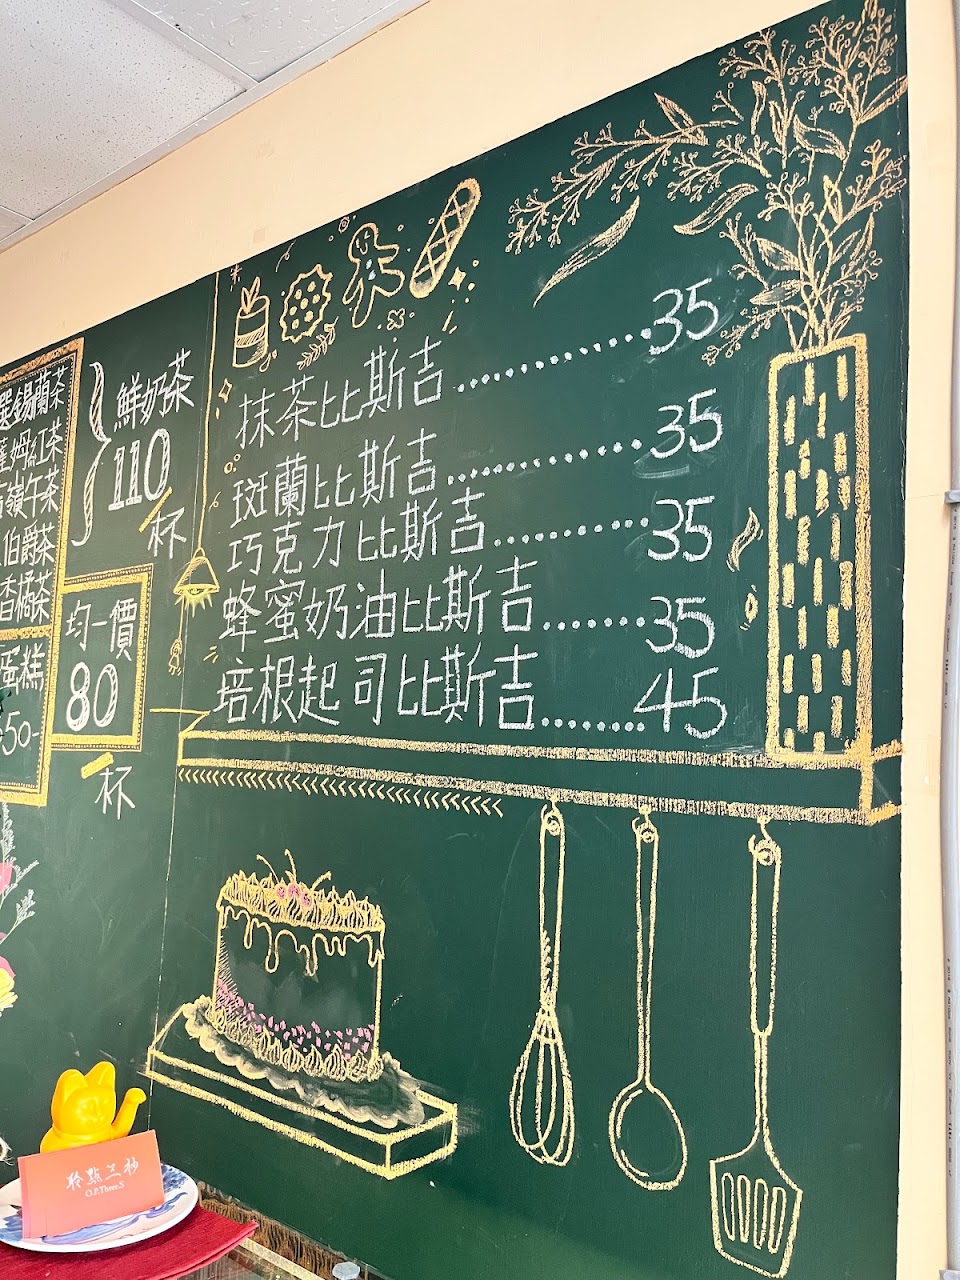 錫蘭茶
姆紅茶
嶺午茶
伯爵茶
香橘茶
蛋糕
50-
鮮奶茶
110
杯
均一價
80
杯
抹茶比斯吉............35
斑蘭比斯吉............35
巧克力比斯吉..........35
蜂蜜奶油比斯吉.......35
培根起司比斯吉.......45
聆點三秒
O.P.Three.S